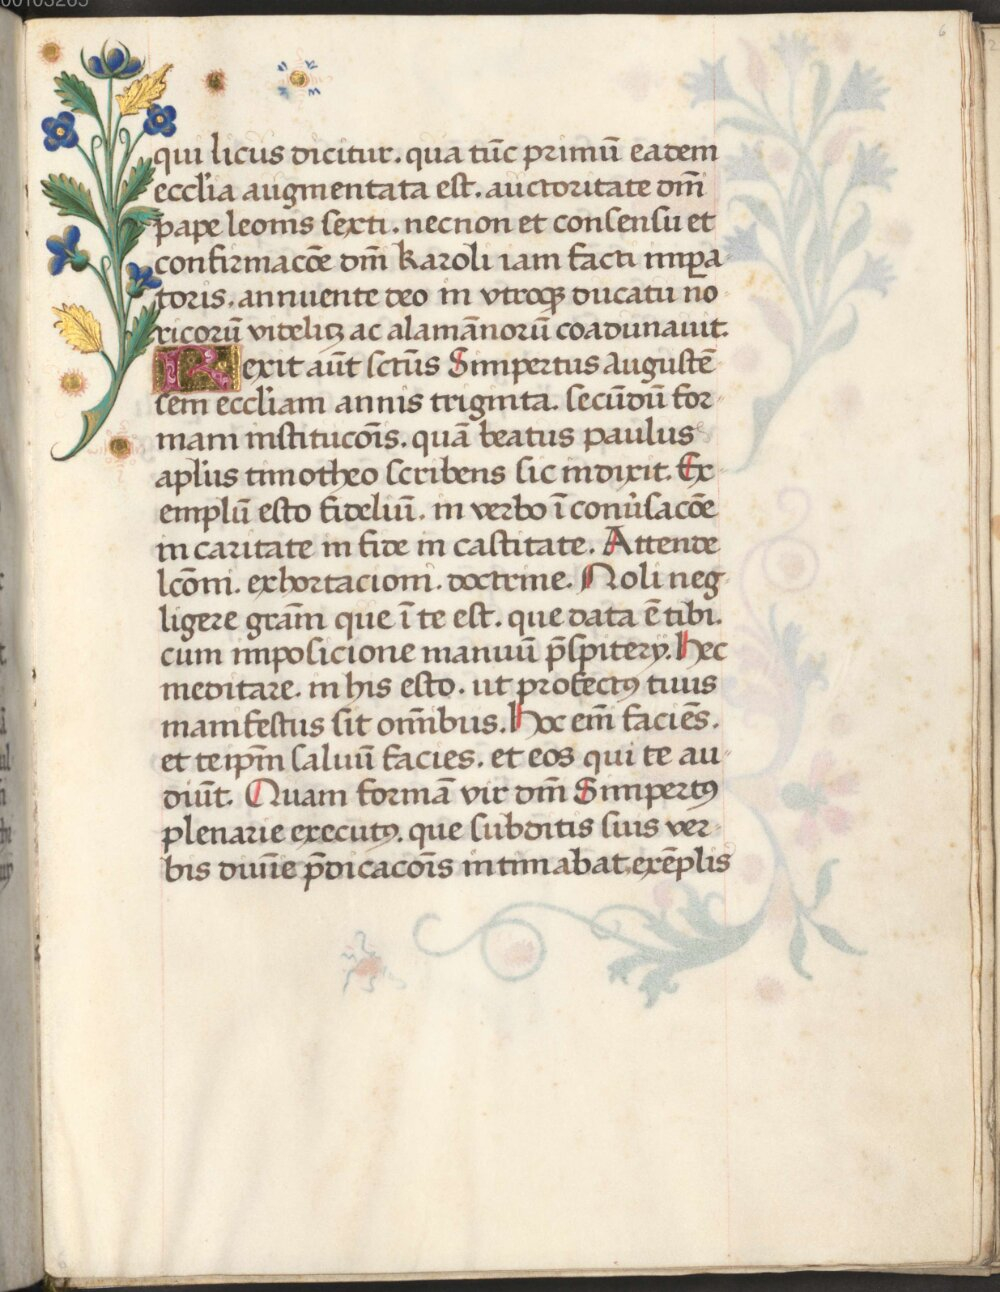 6
qui licus dicitur. qua tūc primū eadem
eccl'ia augmentata est. auctoritate dm̄i
pape leonis sexti. necnon et consensu et
confirmacōe dm̄i karoli iam facti imꝑa-
toris. annuente deo in vtroqꝫ ducatu no-
ricorū videlicꝫ ac alamānorū coadunauit.
Rexit aūt sctūs Simpertus Augustē-
sem eccl'iam annis triginta. secūdū for-
mam institucōis. quā beatus paulus
apl'us timotheo scribens sic indixit. Ex
emplū esto fideliū. in verbo ī conu̓sacōe
in caritate in fide in castitate. Attende
lcōni. exhortacioni. doctrine. Noli neg-
ligere grām que ī te est. que data ē tibi.
cum imposicione manuū p̄sƀiterij. Hec
meditare. in his esto. ut profectꝯ tuus
manifestus sit om̄ibus. Hoc em̄ faciēs.
et teip̄m saluū facies. et eos qui te au-
diūt. Quam formā vir dm̄ Simpertꝯ
plenarie executꝯ. que subditis suis ver-
bis diuīe p̄dicacōis intimabat, exēplis